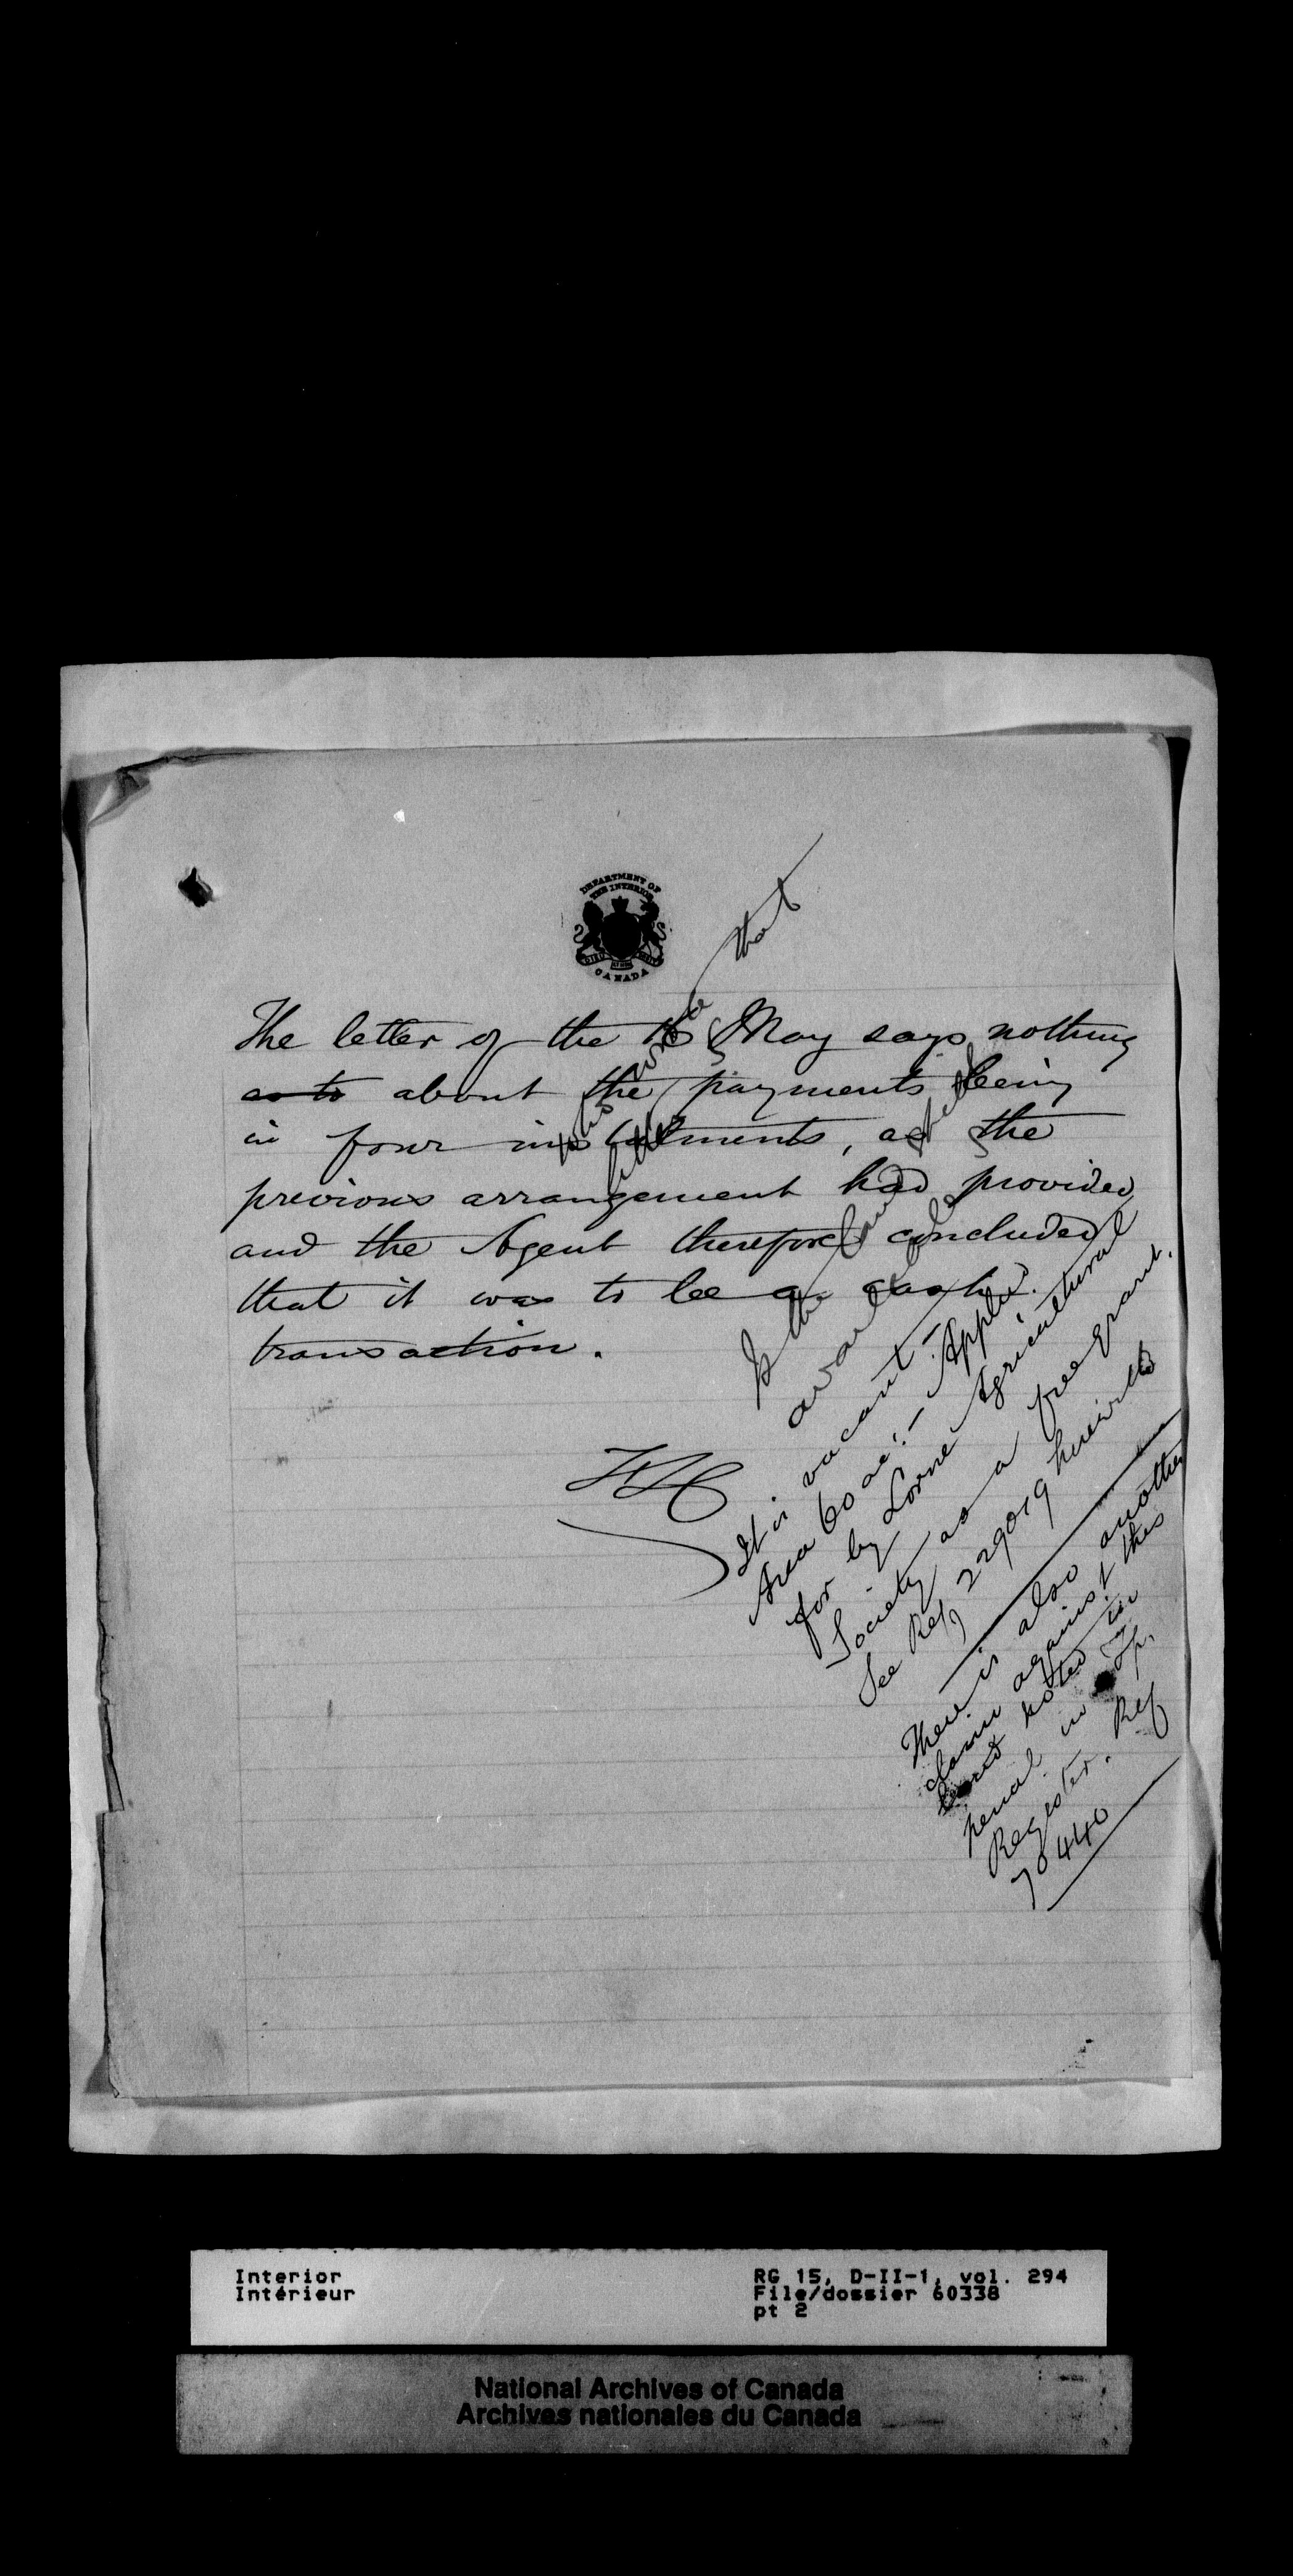 DEPARTMENT OF
THE INTERIOR
CANADA
The letter of the 16 May says nothing
as to about the payments being
in four instalments, as the
previous arrangement had provided
and the Agent therefore concluded
that it was to be a cash
transaction.
that
Is the land
available
It is vacant –
Area 60 ac. – Applied
for by Lorne Agricultural
Society as a free grant.
See Ref 229019 herewith
There is also another
claim against this
noted in
pencil in Tp.
Register. Ref
70440
Interior
Intérieur
RG 15, D-II-1, vol. 294
File/dossier 60338
pt 2
National Archives of Canada
Archives nationales du Canada